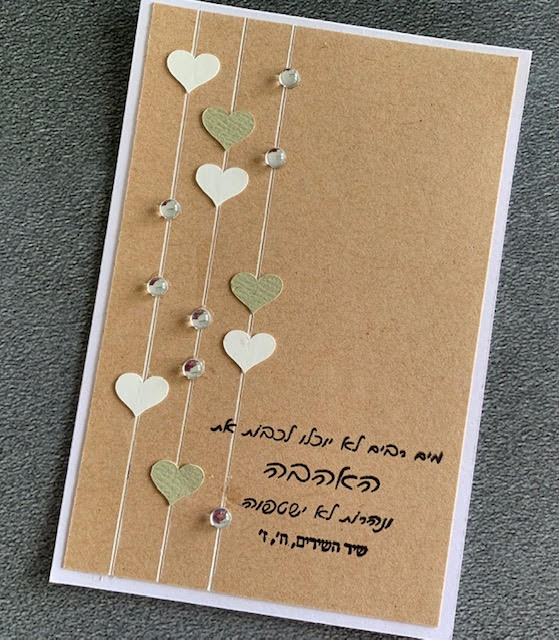 מים רבים לא יוכלו לכבות את
האהבה
ונהרות לא ישטפוה
שיר השירים, ח', ז'